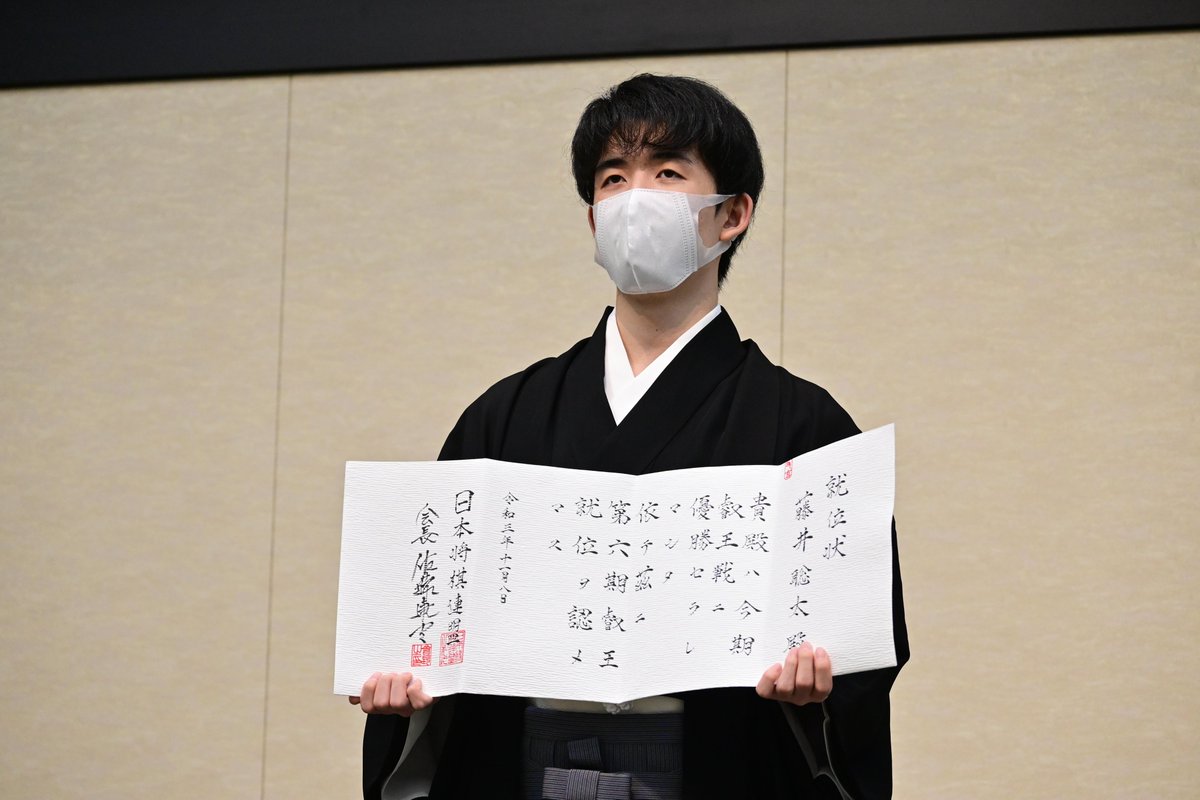 就位状
藤井聡太殿
貴殿ハ今期
叡王戦ニ
優勝セラレ
マシタ
依テ茲ニ
第六期叡王
就位ヲ認メ
マス
令和三年十一月八日
日本将棋連盟
会長 佐藤康光